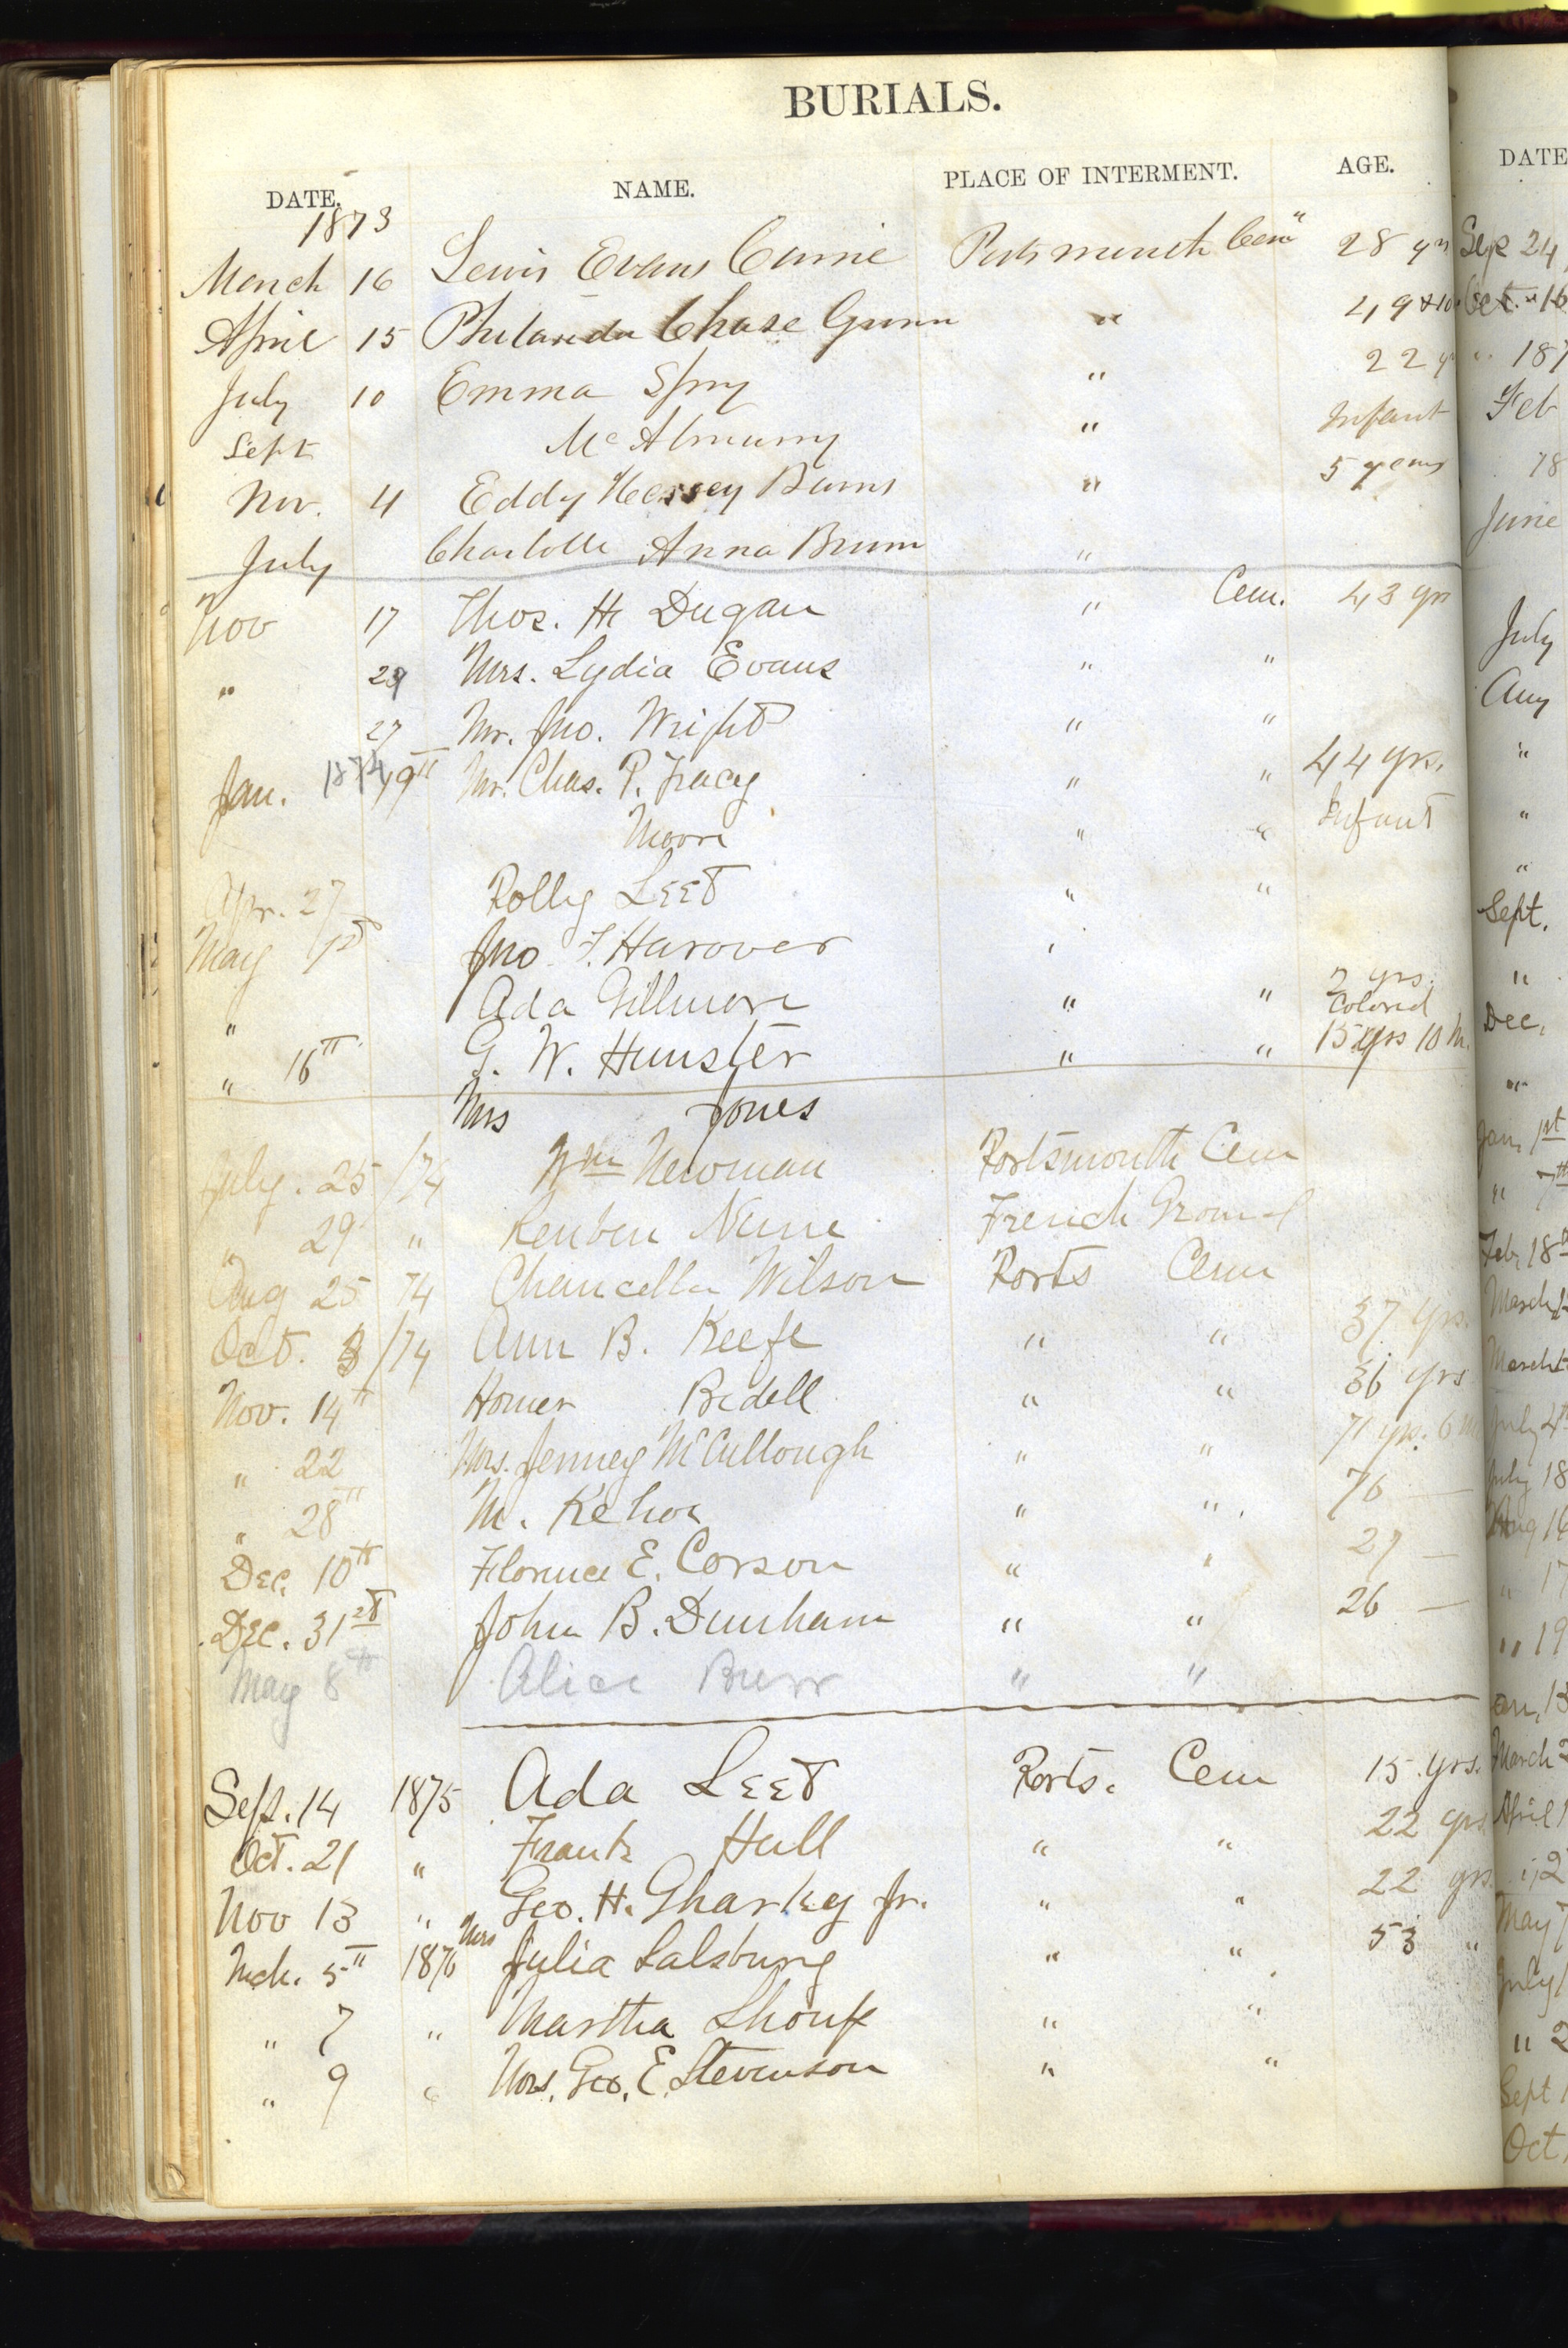 BURIALS.
DATE. NAME. PLACE OF INTERMENT. AGE.
1873
March 16 Lewis Evans Currie Portsmouth Cem" 28 yrs
April 15 Philander Chase Gunn " 49
July 10 Emma Spry " 22 y
Sept Mc " Infant
Nov. 4 Eddy Hersey Barns " 5 years
July Charlotte Anna Brunn "
Nov 17 Thos. H. Dugan " Cem. 43 yrs
" 29 Mrs. Lydia Evans " "
27 Mr. Jno. Wright " "
Jan. 1874 19th Mr. Chas. P. Tracy " " 44 yrs.
Moore " " Infant
Apr. 27 Rolly Leet " "
May 1st Jno F. Havover "
" Ada Gillmore " " 2 yrs. Colored
" 16th G. W. Hunster " " 15 yrs 10 m.
Mrs Jones
July. 25 /74 Wm Newman Portsmouth Cem
" 29 " Reuben Nune French Ground
Aug 25 74 Chancellor Wilson Ports Cem
Oct. 3 /74 Ann B. Keefe " " 37 yrs.
Nov. 14th Homer Bedell " " 36 yrs
" 22 Mrs. Jenney McCullough " " 71 yrs. 6 m
" 28th M. Kehoe " " 76 —
Dec. 10th Florence E. Corson " " 27 —
Dec. 31st John B. Dunham " " 26 —
May 8th Alice Burr " "
Sept. 14 1875 Ada Leet Ports. Cem 15 yrs.
Oct. 21 " Frank Hull " " 22 yrs
Nov 13 " Geo. H. Gharkey Jr. " " 22 yrs.
Mch. 5th 1876 Mrs Julia Salsburg " " 53 "
" 7 " Martha Shoup " "
" 9 " Mrs. Geo. E. Stevenson " "
DATE
Sep 24
Oct. 16
" 187
Feb
78
June
July
Aug
"
"
"
Sept.
"
Dec.
"
Jan. 1st
" 7th
Feb. 18th
March
March
July 4th
July 18
Aug 16
" 17
" 19
Jan. 13
March 2
April 1
" 2
May 7
July 1
" 2
Sept 1
Oct.